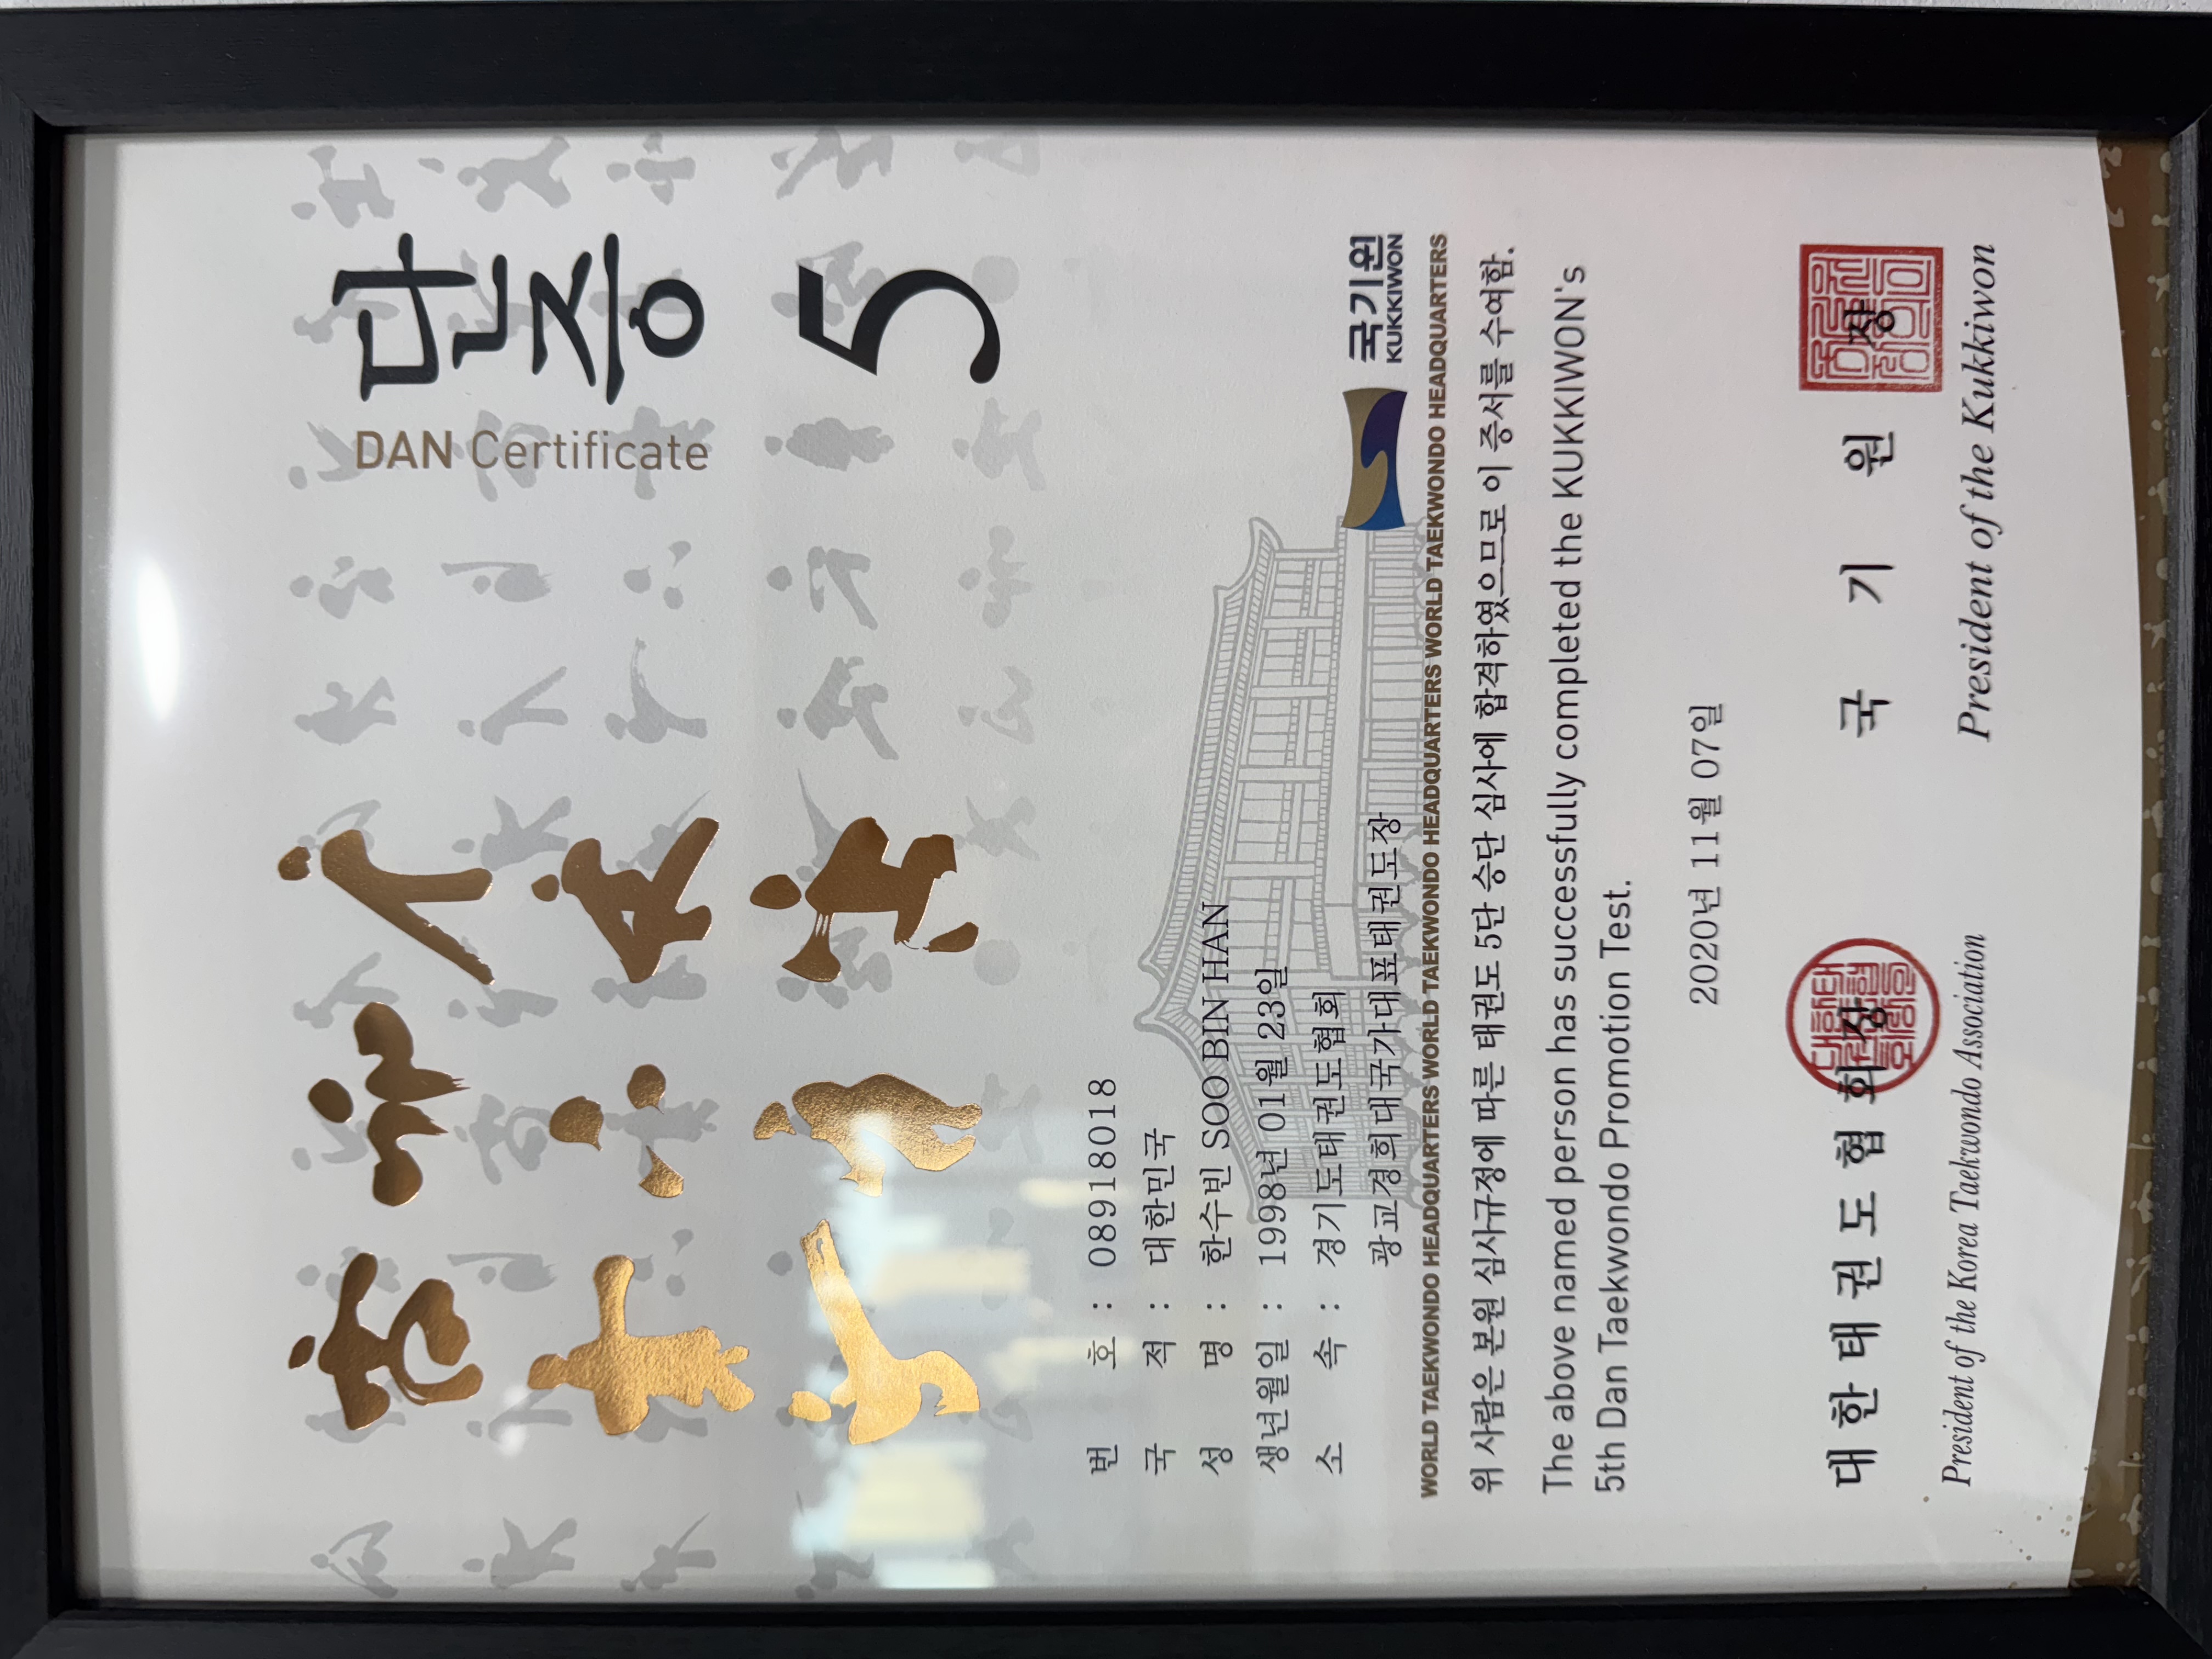 단증
DAN Certificate
5
번 호 : 08918018
국 적 : 대한민국
성 명 : 한수빈 SOO BIN HAN
생년월일 : 1998년 01월 23일
소 속 : 경기도태권도협회
광교경희대국가대표태권도장
국기원
KUKKIWON
WORLD TAEKWONDO HEADQUARTERS WORLD TAEKWONDO HEADQUARTERS WORLD TAEKWONDO HEADQUARTERS WORLD TAEKWONDO HEADQUARTERS WORLD TAEKWONDO HEADQUARTERS
위 사람은 본원 심사규정에 따른 태권도 5단 승단 심사에 합격하였으므로 이 증서를 수여함.
The above named person has successfully completed the KUKKIWON's
5th Dan Taekwondo Promotion Test.
2020년 11월 07일
대한태권도협회장
President of the Korea Taekwondo Association
국 기 원 장
President of the Kukkiwon